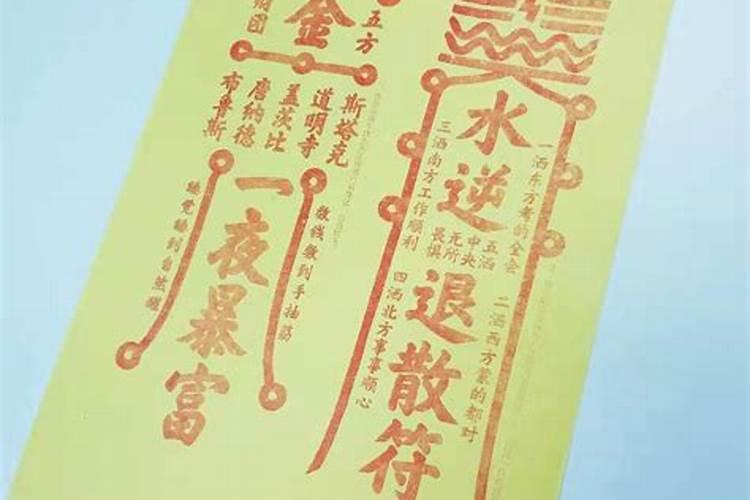 水逆退散符
一洒东方考的全会
二洒西方蒙的都对
三洒南方工作顺利
四洒北方事事顺心
五洒中央无所畏惧
五方
金
团
斯塔克
道明寺
盖茨比
唐纳德
布鲁斯
一夜暴富
数钱数到手抽筋
睡觉睡到自然醒